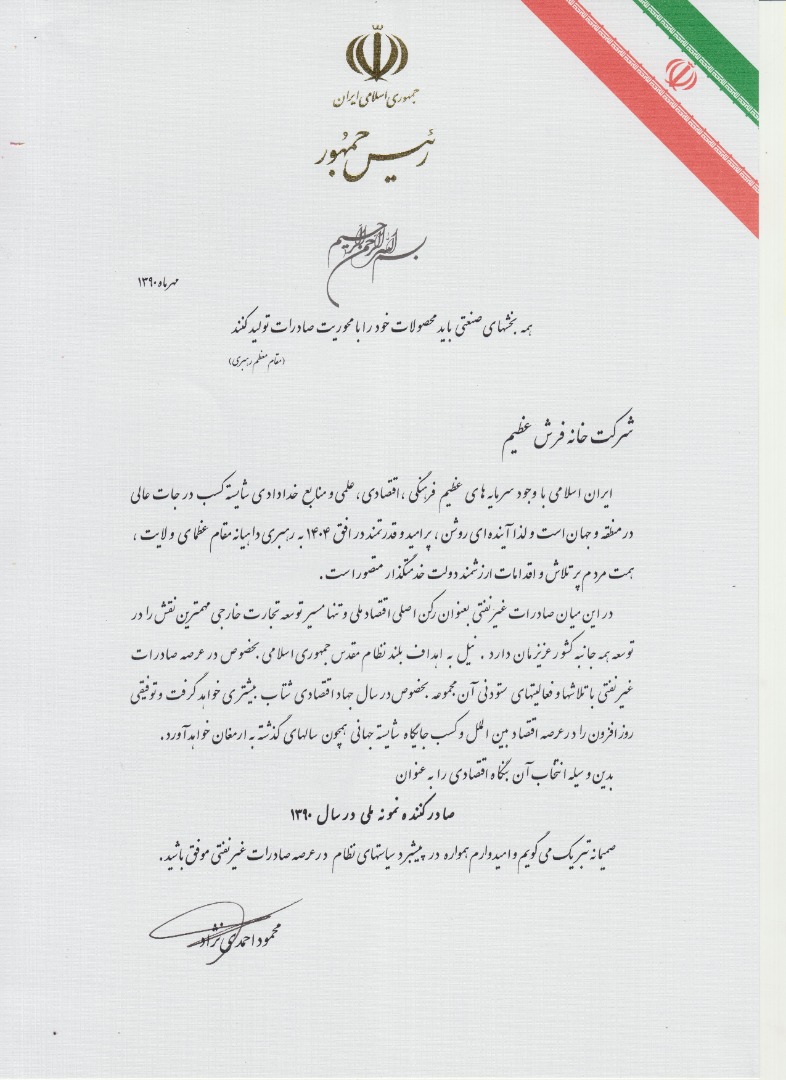 جمهوری اسلامی ایران
رئیس جمهور
بسم الله الرحمن الرحیم
مهرماه ۱۳۹۰
همه بخشهای صنعتی باید محصولات خود را با محوریت صادرات تولید کنند
(مقام معظم رهبری)
شرکت خانه فرش عظیم
ایران اسلامی با وجود سرمایه های عظیم فرهنگی ، اقتصادی ، علمی و منابع خدادادی شایسته کسب درجات عالی
در منطقه و جهان است و لذا آینده ای روشن ، پرامید و قدرتمند در افق ۱۴۰۴ به رهبری داهیانه مقام عظمای ولایت ،
همت مردم پرتلاش و اقدامات ارزشمند دولت خدمتگذار متصور است .
در این میان صادرات غیرنفتی بعنوان رکن اصلی اقتصاد ملی و تنها مسیر توسعه تجارت خارجی مهمترین نقش را در
توسعه همه جانبه کشور عزیزمان دارد . نیل به اهداف بلند نظام مقدس جمهوری اسلامی بخصوص در عرصه صادرات
غیرنفتی با تلاشها و فعالیتهای ستودنی آن مجموعه بخصوص در سال جهاد اقتصادی شتاب بیشتری خواهد گرفت و توفیقی
روز افزون را در عرصه اقتصاد بین الملل و کسب جایگاه شایسته جهانی همچون سالهای گذشته به ارمغان خواهد آورد .
بدین وسیله انتخاب آن بنگاه اقتصادی را به عنوان
صادر کننده نمونه ملی در سال ۱۳۹۰
صمیمانه تبریک می گویم و امیدوارم همواره در پیشبرد سیاستهای نظام در عرصه صادرات غیرنفتی موفق باشید .
محمود احمدی نژاد